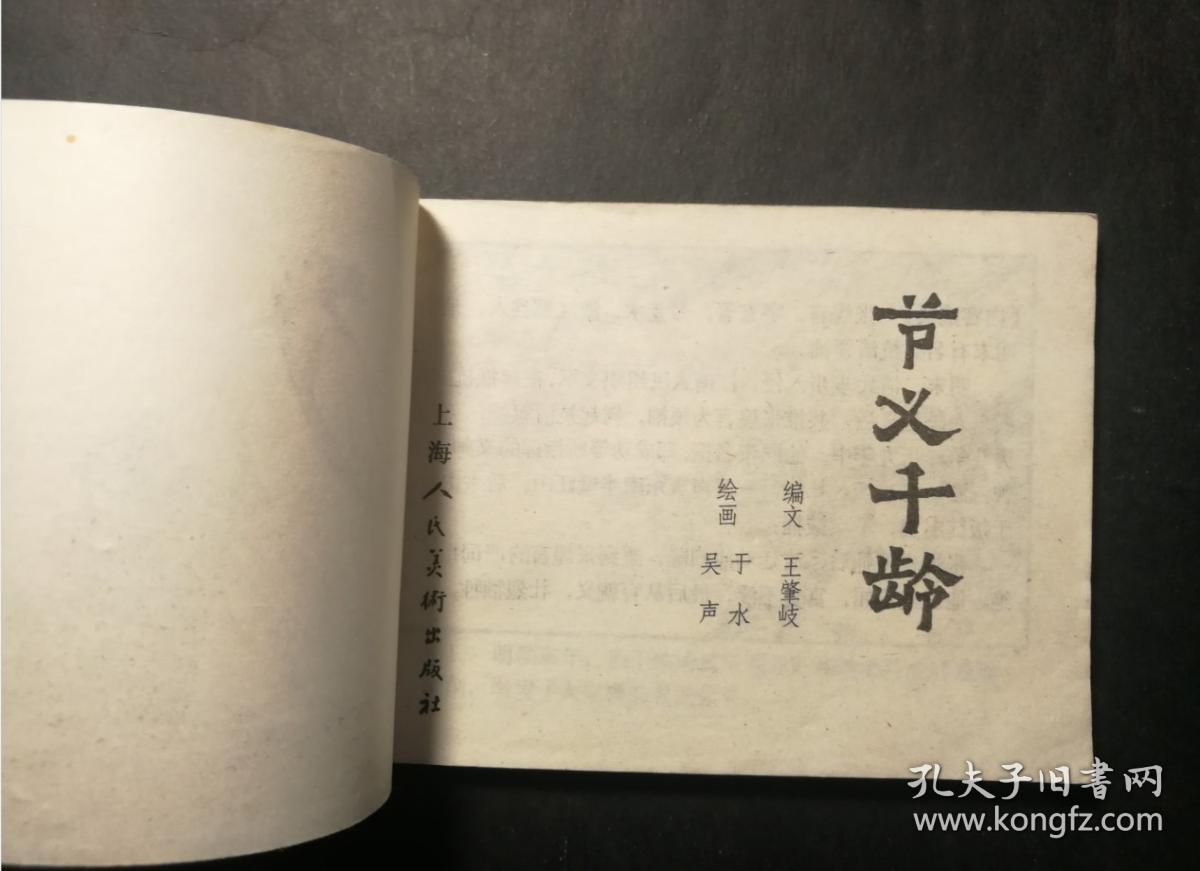 节义千龄
编文 王肇岐
绘画 于水
吴声
上海人民美術出版社
孔夫子旧書网
www.kongfz.com